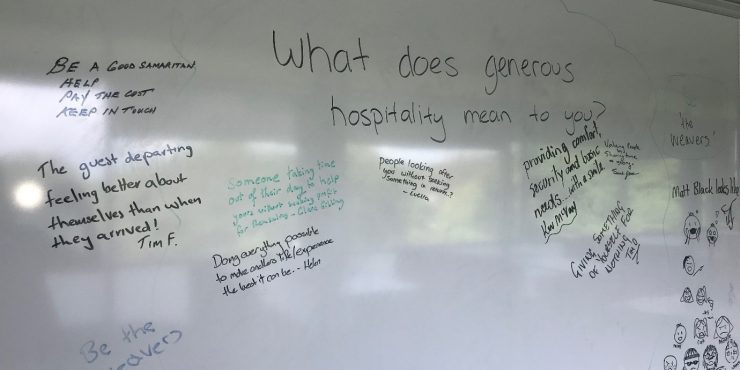 What does generous
hospitality mean to you?
BE A GOOD SAMARITAN
HELP
PAY THE COST
KEEP IN TOUCH
The guest departing
feeling better about
themselves than when
they arrived!
TIM F.
Someone taking time
out of their day to help
yours without seeking profit
for themselves -
Doing everything possible
to make another's life/experience
the best it can be. - Helen
people looking after
you without seeking
something in return.?
providing comfort,
security and basic
needs... with a smile
GIVING SOMETHING
OF YOURSELF FOR
NOTHING
'the
weavers'
Making People
Matt Black looks like
Be the
weavers